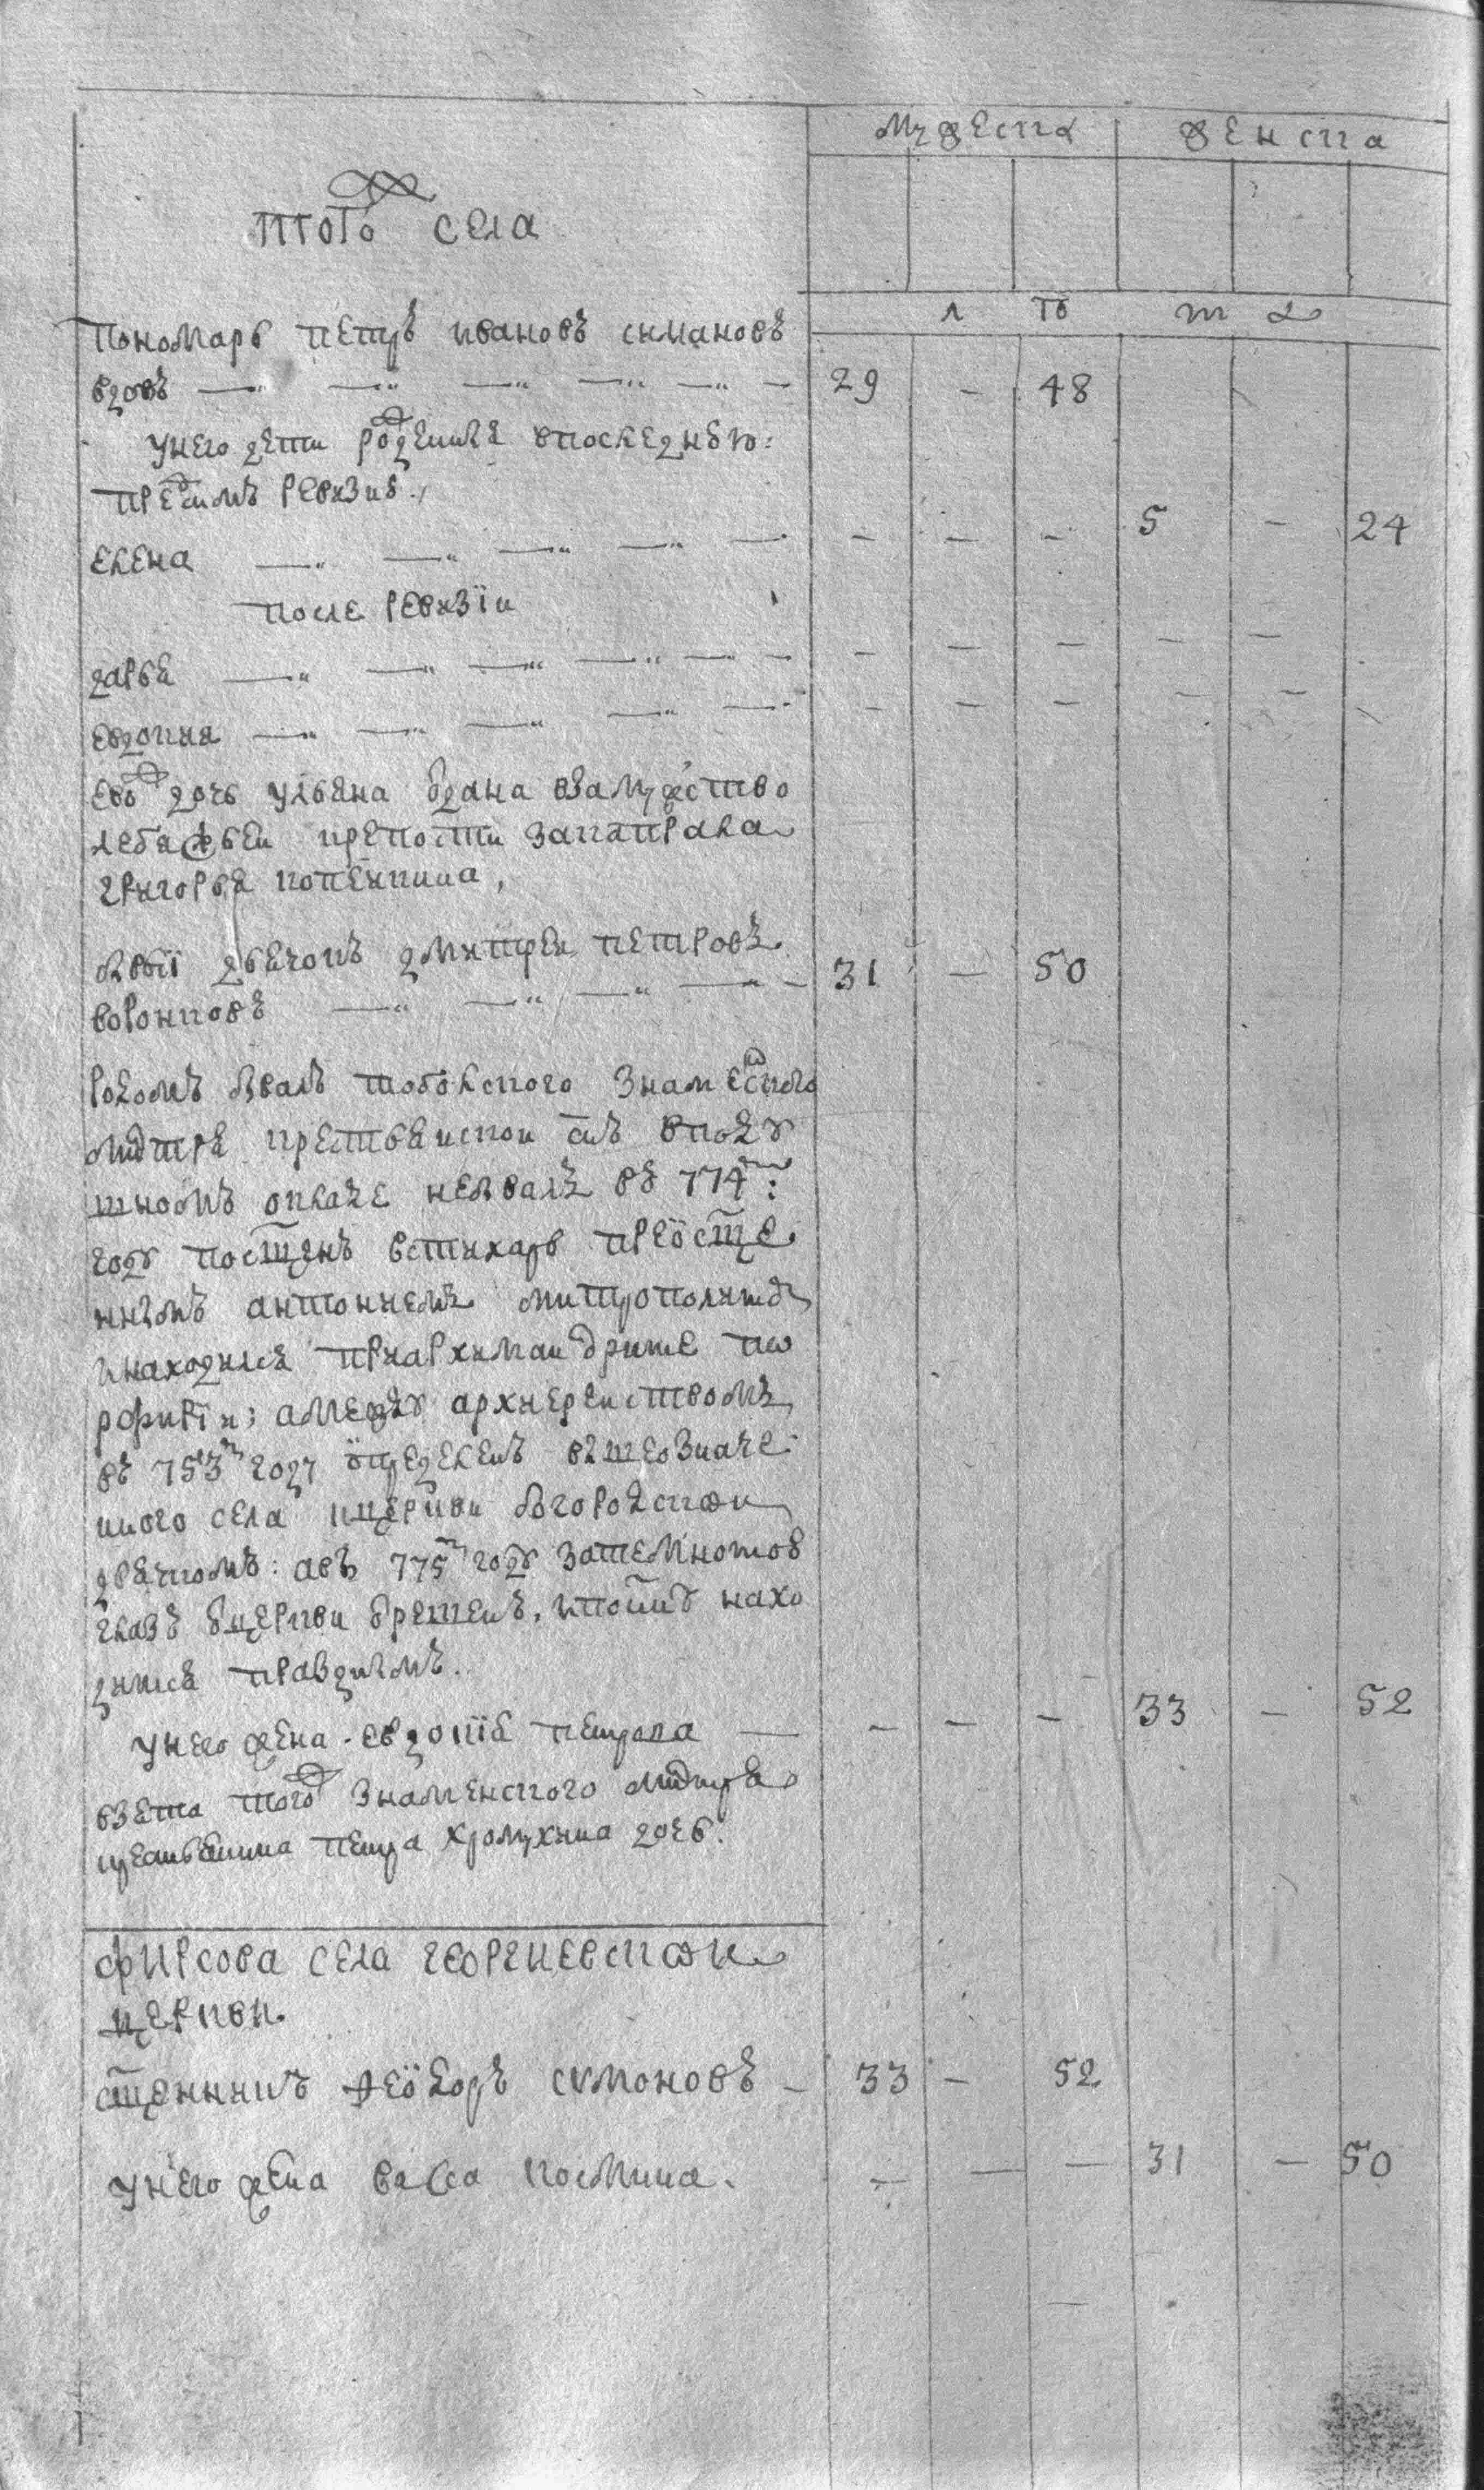 мужеска женска
того села
л то т а
Пономарь петръ ивановъ симановъ
вдовъ 29 - 48
унего дети рожденные впоследнюю
пред симъ ревизию
елена - - - 5 - 24
после ревизїи
дарья - - - - -
евдокия - - - - -
ево дочь ульяна выдана взамужество
лебяжьей крепости закапрала
григорья
бывшїй дьячокъ дмитрей петровъ
воронковъ 31 - 50
родомъ бывалъ тобольского знаменского
мнтря крестьянской сынъ вподу
шномъ окладе небывалъ въ 774м:
году посщенъ встихарь преѡсще
ннымъ антониемъ митрополитомъ
инаходился приархимандрите по
рфирїи; амежду архиерействомъ
въ 753м году определенъ вышеозначе
нного села кцеркви богородской
дьячкомъ: авъ 775м году
указъ отцеркви отрешенъ, нахо
дится празднымъ.
унего жена евдокїя петрова - - - 33 - 52
взета того знаменского мнтря
крестьянина петра хромухина дочь.
фирсова села георгиевской
церкви
сщенникъ феѡдоръ симоновъ - 33 - 52
унего жена васса космина. - - - 31 - 50